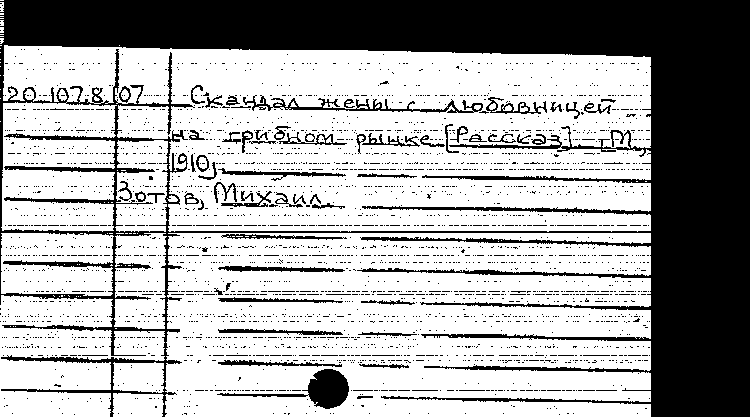 20.107.8.107 Скандал жены с любовницей
на грибном рынке [Рассказ]. М,
1910,
Зотов, Михаил.